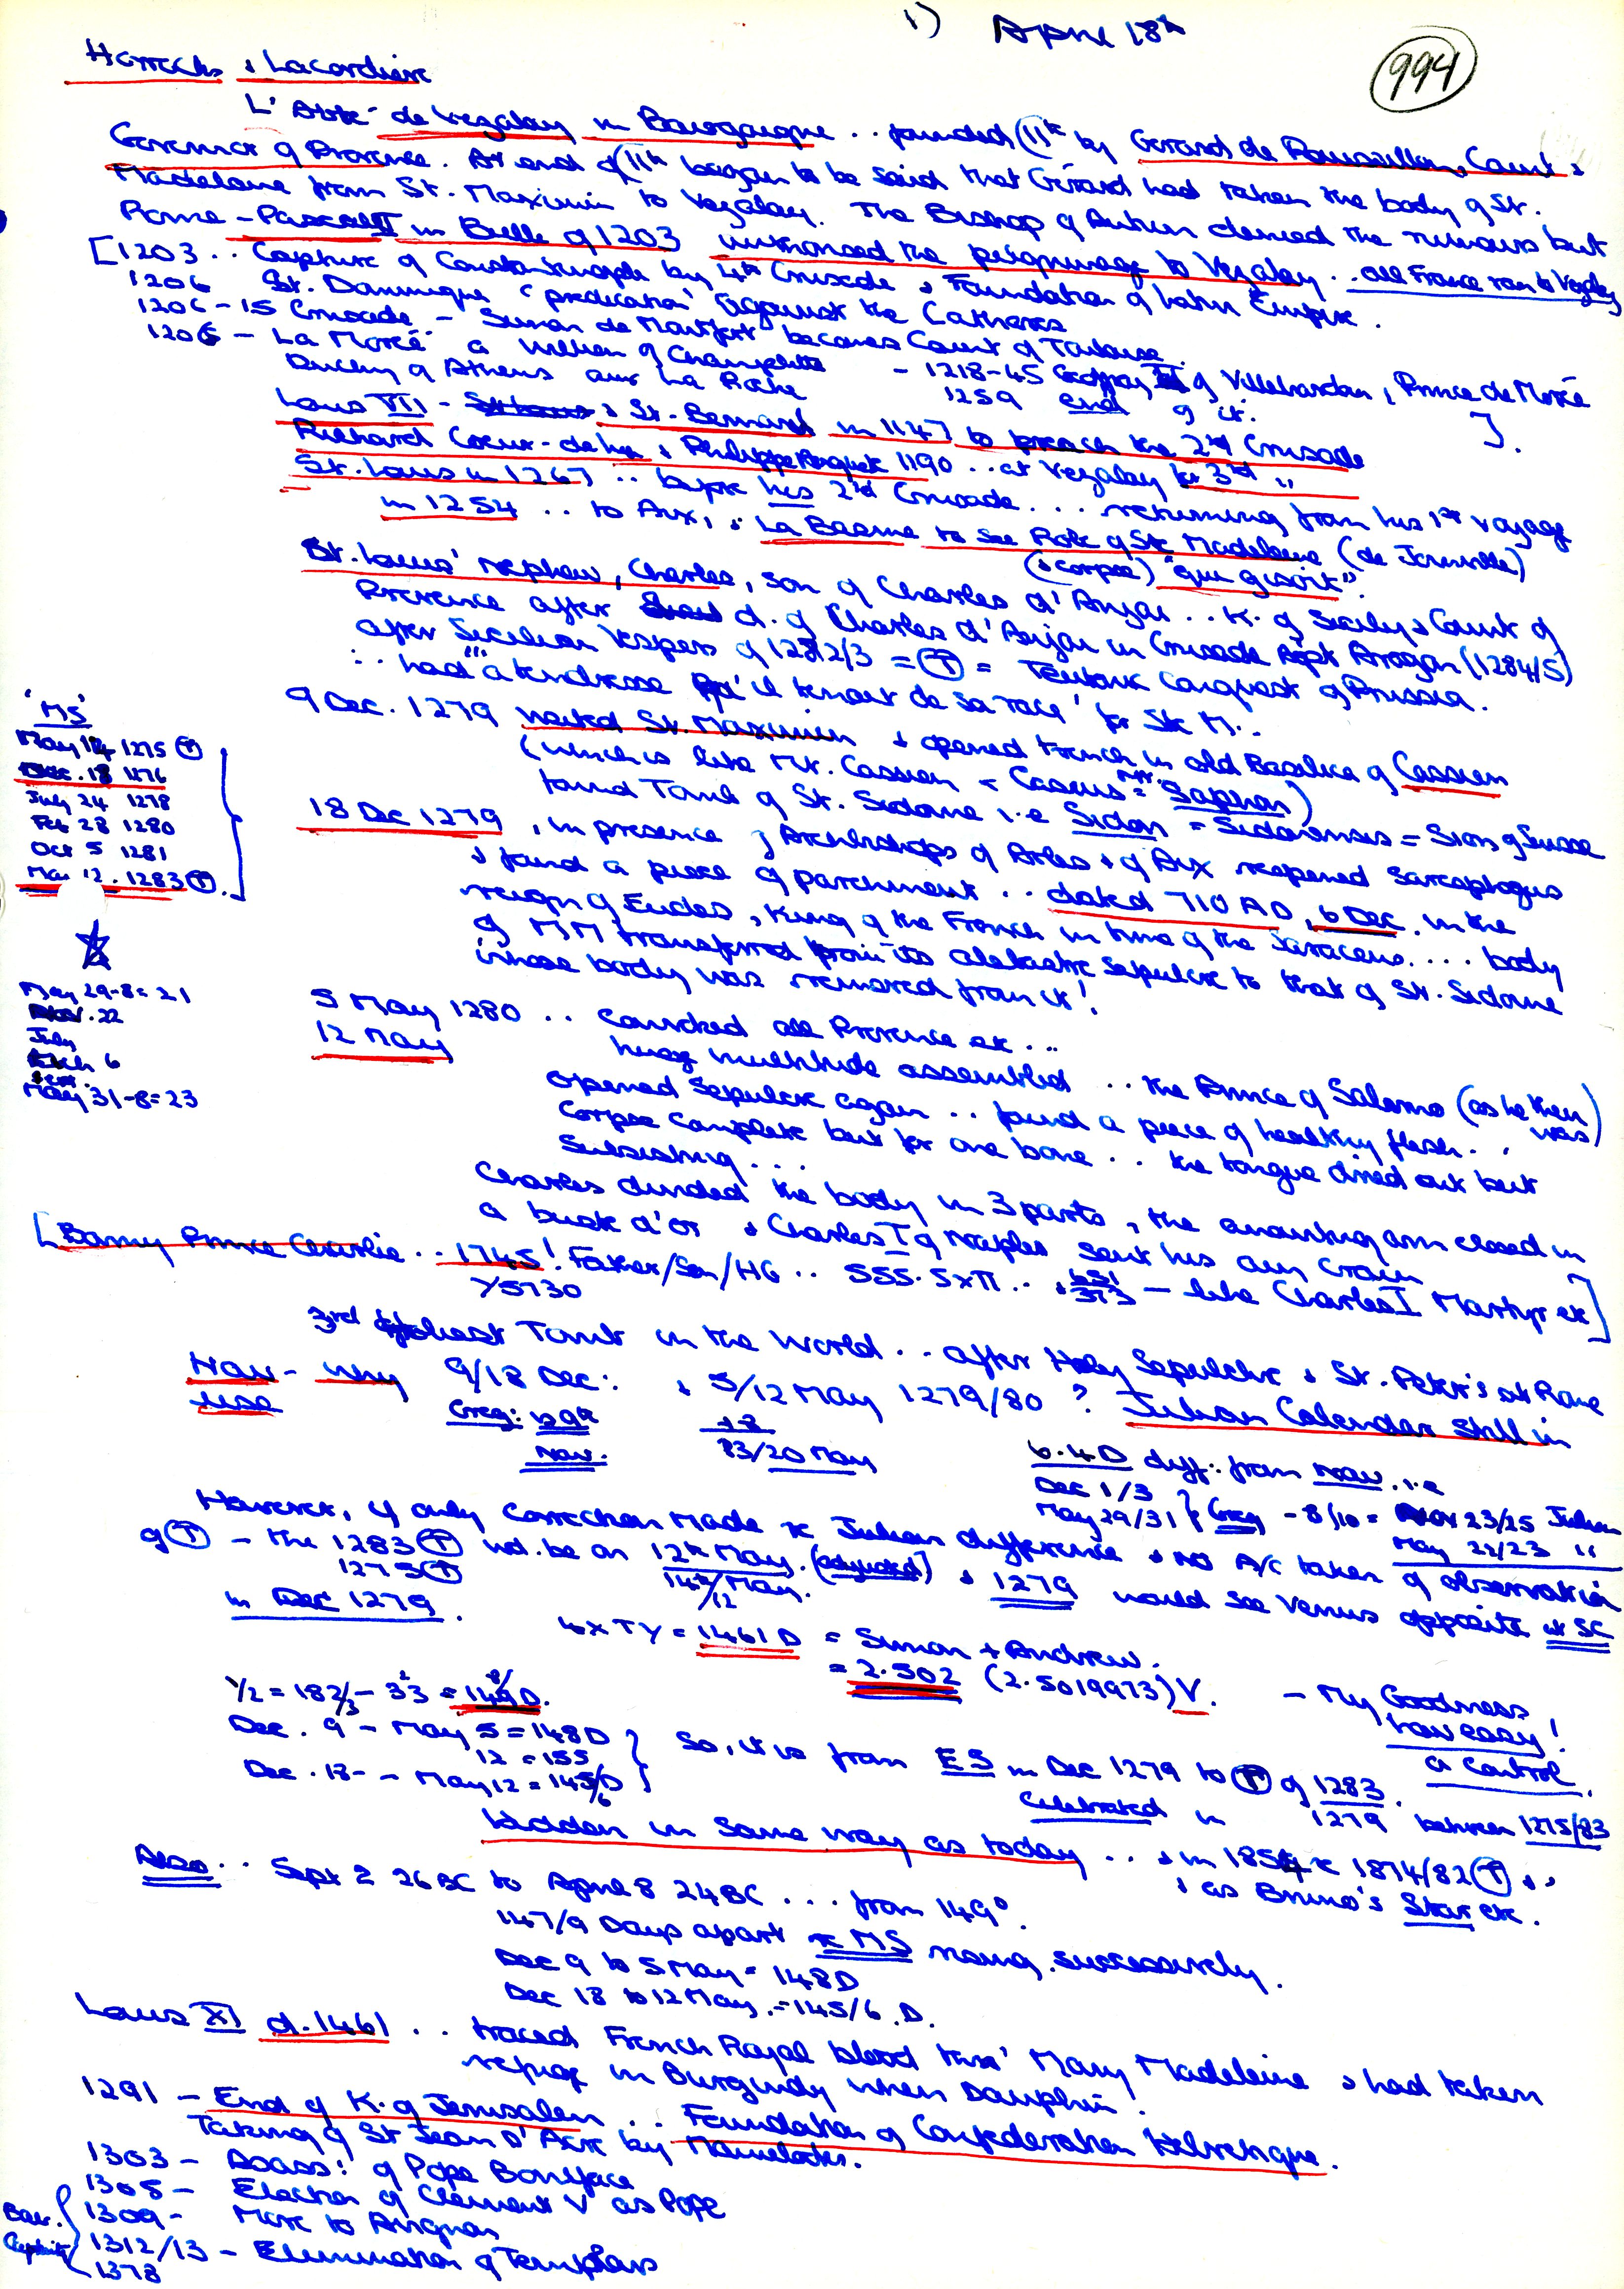 1) April 18th
994
Horrocks & Lacordière
L'Abbé de Vezalay in Bourgogne .. founded (11th by Gerard de Roussillon, Count &
Governor of Provence. At end of (11th began to be said that Gérard had taken the body of St.
Madelaine from St. Maximin to Vezalay. The Bishop of Autun denied the rumours but
Rome - Pascal II in Bulle of 1203 authorised the pilgrimage to Vezalay .. all France ran to Vezalay
[1203 .. Capture of Constantinople by 4th Crusade & Foundation of Latin Empire.
1206 St. Dominique 'predication' against the Cathares
1206 - 15 Crusade - Simon de Montfort becomes Count of Toulouse.
1205 - La Morée a William of Champlitte - 1218-45 Geoffrey II of Villehardouin, Prince de Morée
Duchy of Athens aux La Roche 1259 end of it. ].
Louis VII - & St. Bernard in 1147 to preach the 2nd Crusade
Richard Coeur-de-Lion & Philippe August 1190 .. at Vezalay for 3rd "
St. Louis in 1267 .. before his 2nd Crusade ... returning from his 1st voyage
in 1254 .. to Aix, & La Baume to see Rock of Ste Madeleine (de Joinville)
(& corpse) "qui gisoit".
St. Louis' nephew, Charles, son of Charles d'Anjou .. K. of Sicily & Count of
Provence after d. of Charles d'Anjou in Crusade agst Aragon (1284/5)
after Sicilian Vespers of 1282/3 = (T) = Teutonic Conquest of Prussia.
.. had "a tendresse qu'il tenait de sa race' for Ste M..
9 Dec. 1279 visited St. Maximin & opened trench in old Basilica of Cassien
(which is like Mt. Cassien & Cassius = Mt. Saphon)
found Tomb of St. Sidoine i.e Sidon = Sidonensis = Sion of Suisse
18 Dec 1279, in presence of Archbishops of Arles & of Aix reopened sarcophagus
& found a piece of parchment .. dated 710 AD, 6 Dec. in the
reign of Eudes, King of the French in time of the Saracens .... body
of MM transferred from its alabaster sepulcre to that of St. Sidoine
whose body was removed from it!
'MS'
May 14 1275 (T)
Dec. 18 1276
July 24 1278
Feb 28 1280
Oct 5 1281
Mar 12. 1283 (T).
May 29-8=21
Nov. 22
July
March 6
Sept.
May 31-8=23
5 May 1280 .. convoked all Provence etc ..
12 May huge multitude assembled .. the Prince of Salerno (as he then was)
opened sepulcre again .. found a piece of healthy flesh..
Corpse complete but for one bone .. the tongue dried out but
subsisting ...
Charles divided the body in 3 parts, the anointing arm closed in
a bust d'or & Charles I of Naples sent his own Crown
[Bonny Prince Charlie .. 1745! Father/Son/HG .. 555.5xπ .. & 651/373 - like Charles I Martyr etc]
Y5730
3rd Holiest Tomb in the World .. after Holy Sepulchre & St. Peter's at Rome
Now - why 9/18 Dec: & 5/12 May 1279/80 ? Julian Calendar still in
use
Greg: 29th +8
Nov. 13/20 May
6.4D diff: from Nov. i.e
Dec 1/3
May 29/31 } Greg - 8/10 = Nov 23/25 Julian
May 21/23 "
However, if only correction made to Julian difference & no A/c taken of observation
of (T) - the 1283 (T) wd. be on 12th May. (adjusted) & 1279 would see Venus opposite at SC
1275 (T) 14th/12 May.
in Dec 1279.
4xTY = 1461 D = Simon + Andrew.
= 2.502 (2.5019973) V. - My Goodness
how easy!
a control.
1/2 = 182/3 - 33 = 149 D.
Dec. 9 - May 5 = 148D
12 = 155
Dec. 18 - - May 12 = 145/6 D
So, it is from ES in Dec 1279 to (T) of 1283.
Celebrated in 1279 between 1275/83
hidden in same way as today .. & in 1854 to 1874/82 (T) &.
& as Bruno's Star etc.
Also .. Sept 2 26 BC to April 8 24 BC ... from 149°.
147/9 Days apart to MS rising successively.
Dec 9 to 5 May = 148D
Dec 18 to 12 May. = 145/6 .D.
Louis XI d. 1461 .. traced French Royal blood thro' Mary Madeleine & had taken
refuge in Burgundy when Dauphin!
1291 - End of K. of Jerusalem .. Foundation of Confederation Helvetique.
Taking of St Jean D'Acre by Mamelukes.
1303 - Assass: of Pope Boniface
1305 - Election of Clement V as Pope
1309 - Move to Avignon
Bab. Captivity
1312/13 - Elimination of Templars
1378